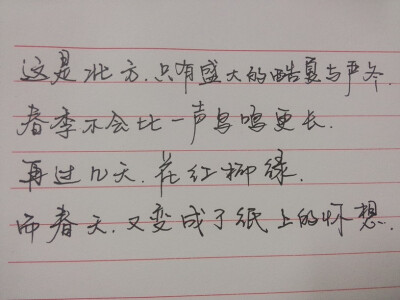 这是北方.只有盛大的酷夏与严冬.
春季不会比一声鸟鸣更长.
再过几天.花红柳绿.
而春天.又变成了纸上的怀想.